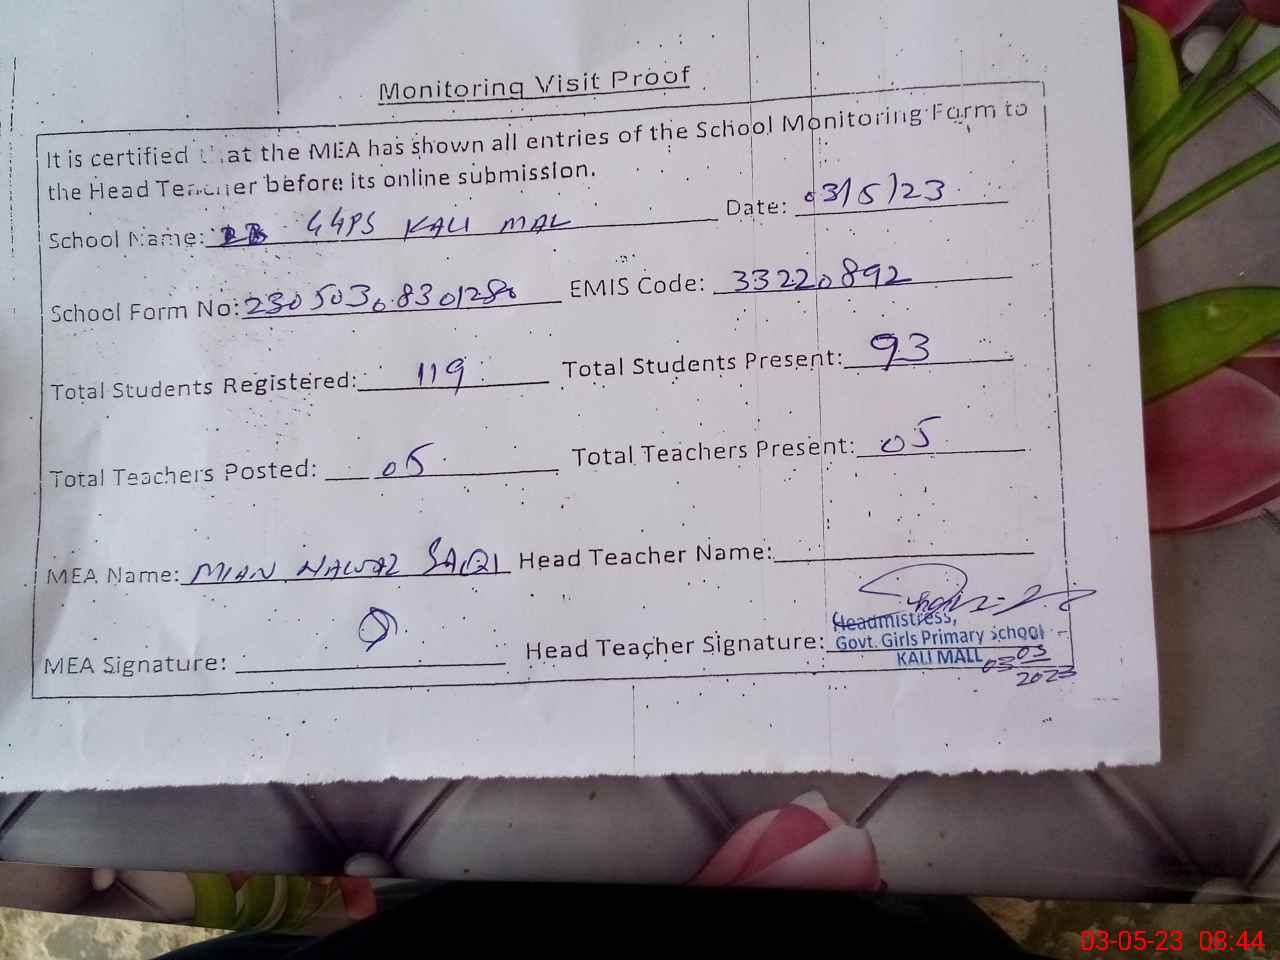 Monitoring Visit Proof
It is certified that the MEA has shown all entries of the School Monitoring Form to
the Head Teacher before its online submission.
School Name: GGPS KALI MAL Date: 03/5/23
School Form No: 2305030830128 EMIS Code: 33220892
Total Students Registered: 119 Total Students Present: 93
Total Teachers Posted: 05 Total Teachers Present: 05
MEA Name: MIAN NAWAZ SAQI Head Teacher Name:
MEA Signature: Head Teacher Signature:
Headmistress,
Govt. Girls Primary School
KALI MALL
03 05
2023
03-05-23 08:44